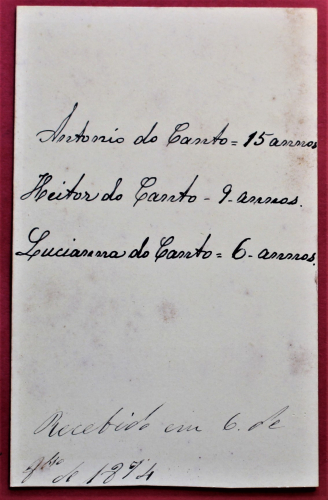 Antonio do Canto = 15 annos
Heitor do Canto - 9 - annos.
Lucianna do Canto = 6 - annos.
Recebido em 6. de
de 1874